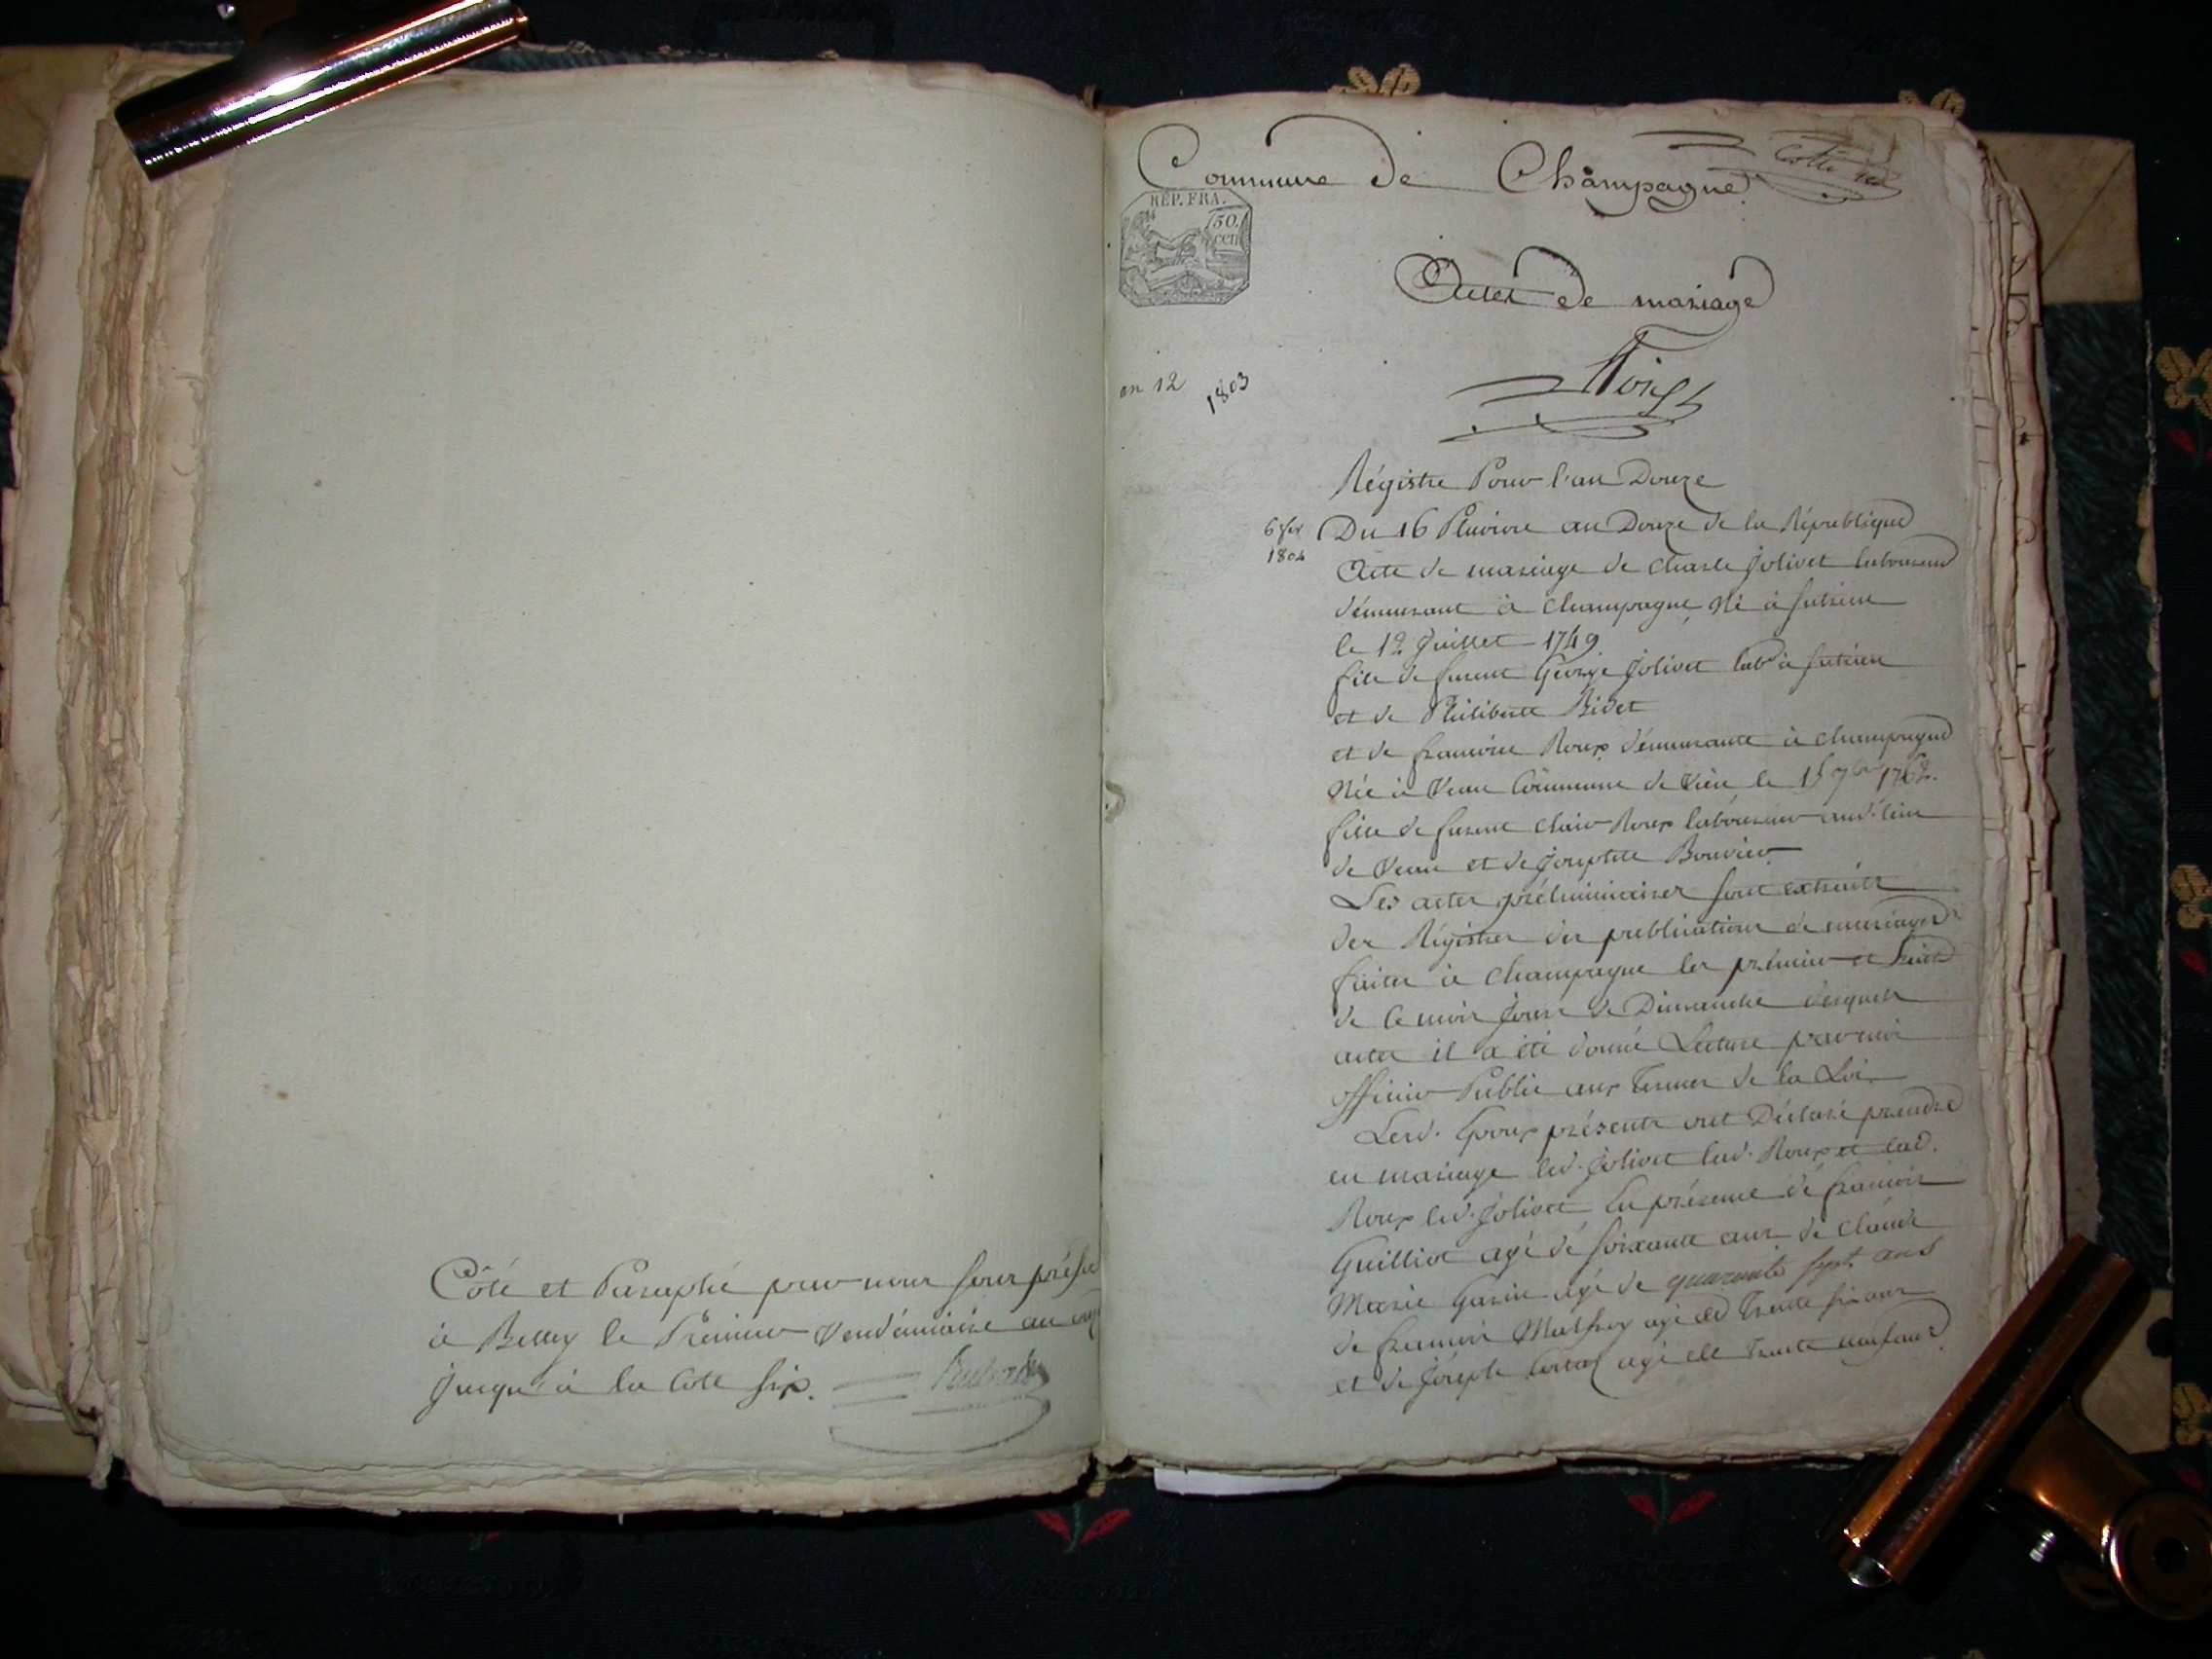 Côté et Paraphé par nous sous préfet
à Belley le Premier Vendémiaire an onze
jusqu'à la Cotte six.
Commune de Champagne
REP. FRA.
50.
cen
Actes de mariage
an 12 1803
Régistre Pour l'an Douze
6 fev
1804
Du 16 Pluviose an Douze de la République
Acte de mariage de Charle Jolivet laboureur
démeurant à Champagne, Né à Sutrieu
le 12 Juillet 1749
fils de furent George Jolivet labr à Sutrieu
et de Philiberte Bidet
et de francoise Roux démeurante à Champagne
Née à Veau Commune de Vieu le 15 7bre 1762.
fille de furent Clair Roux laboureur aud. lieu
de Veau et de Josephte Bouvier
Les actes préliminaires sont extraits
des Régistres des publications de mariages
faites à Champagne les prémier et huit
de ce mois jours de Dimanche desquels
actes il a été donné Lecture par moi
officier Public aux termes de la Loi
Lesd. Epoux présents ont Déclaré prendre
en mariage led. Jolivet lad. Roux et lad.
Roux led. Jolivet En présence dé francois
Guilliot agé dé soixante ans de Claude
Marie Garin agé de quarante sept ans
de francois agé de trente six ans
et de Joseph agé de trente neuf ans